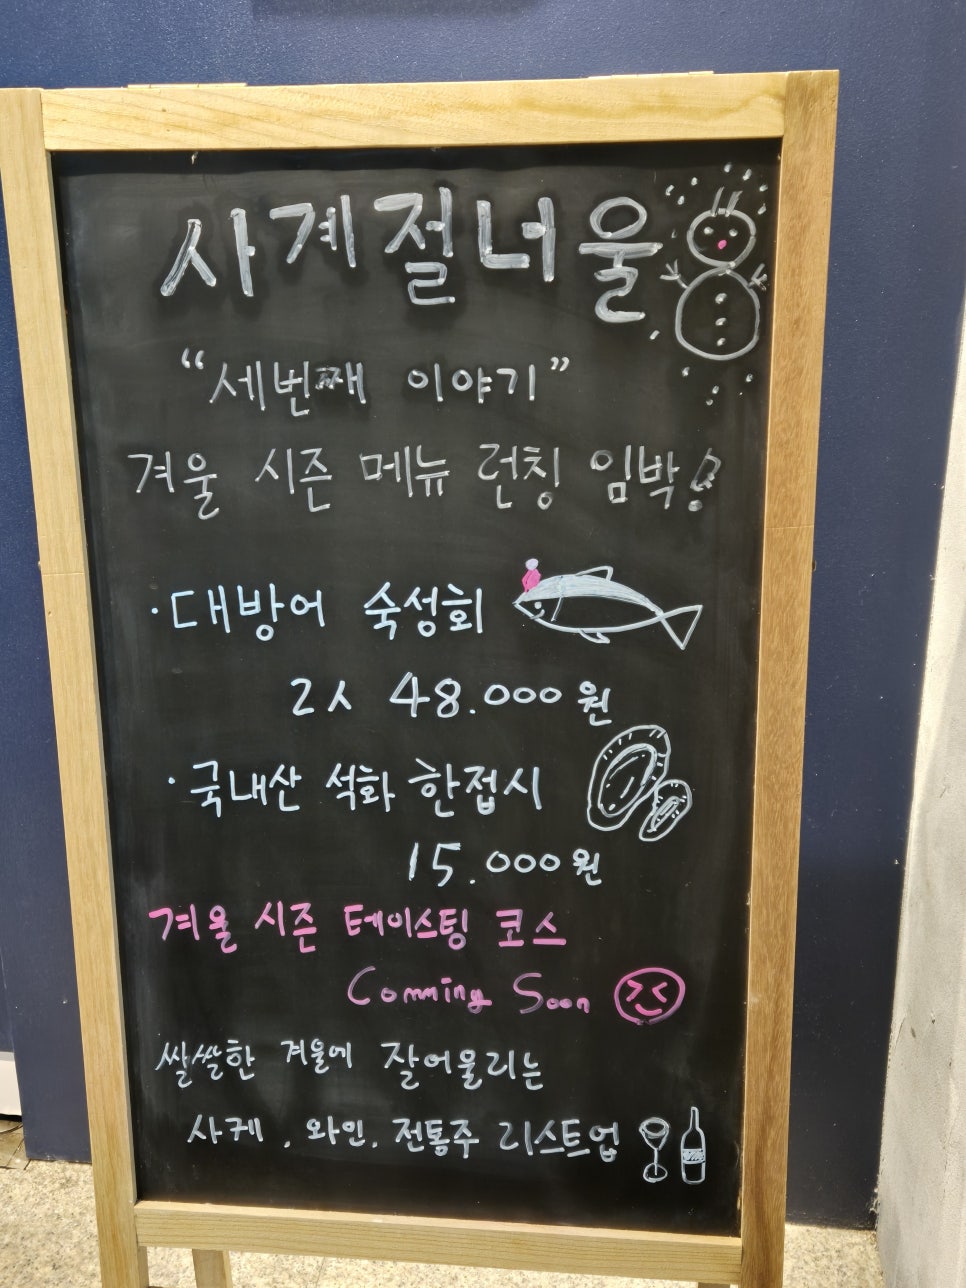 사계절너울
"세번째 이야기"
겨울 시즌 메뉴 런칭 임박!
· 대방어 숙성회
2人 48.000원
· 국내산 석화 한접시
15.000원
겨울 시즌 테이스팅 코스
Comming Soon
쌀쌀한 겨울에 잘어울리는
사케, 와인, 전통주 리스트업